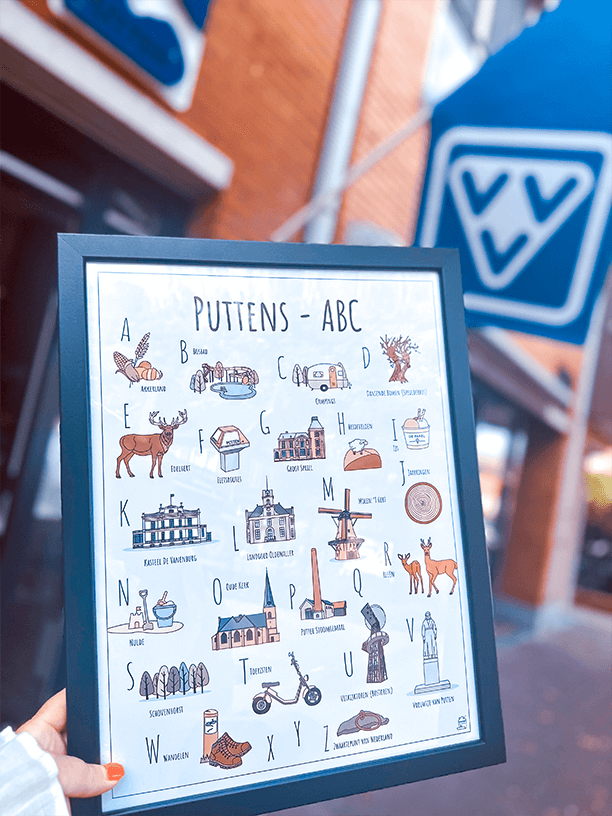 VVV
PUTTENS - ABC
A
AKKERLAND
B
BOSBAD
C
CAMPINGS
D
DANSENDE BOMEN (SPEULDERBOS)
E
EDELHERT
F
FIETSROUTES
PUTTEN
G
GROOT SPRIEL
H
HEIDEVELDEN
I
IJS
J
JAARRINGEN
K
KASTEEL DE VANENBURG
L
LANDGOED OLDENALLER
M
MOLEN 'T HERT
N
NULDE
O
OUDE KERK
P
PUTTER STOOMGEMAAL
Q
R
REEËN
S
SCHOVENHORST
T
TOERISTEN
U
UITKIJKTOREN (BOSTOREN)
V
VROUWTJE VAN PUTTEN
W
WANDELEN
X
Y
Z
ZWAARTEPUNT VAN NEDERLAND